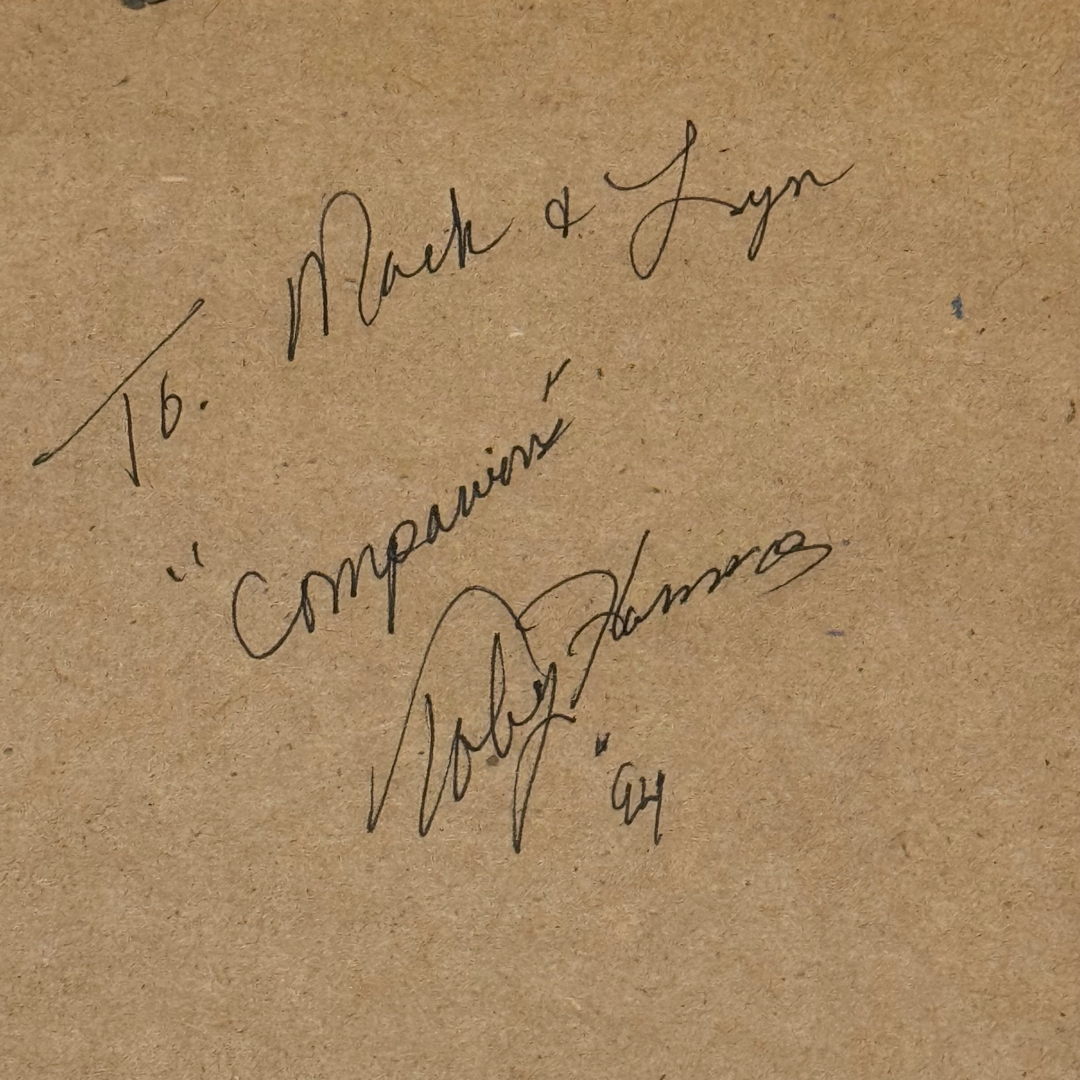 To. Mack & Lyn
"Companions"
Toby
"94